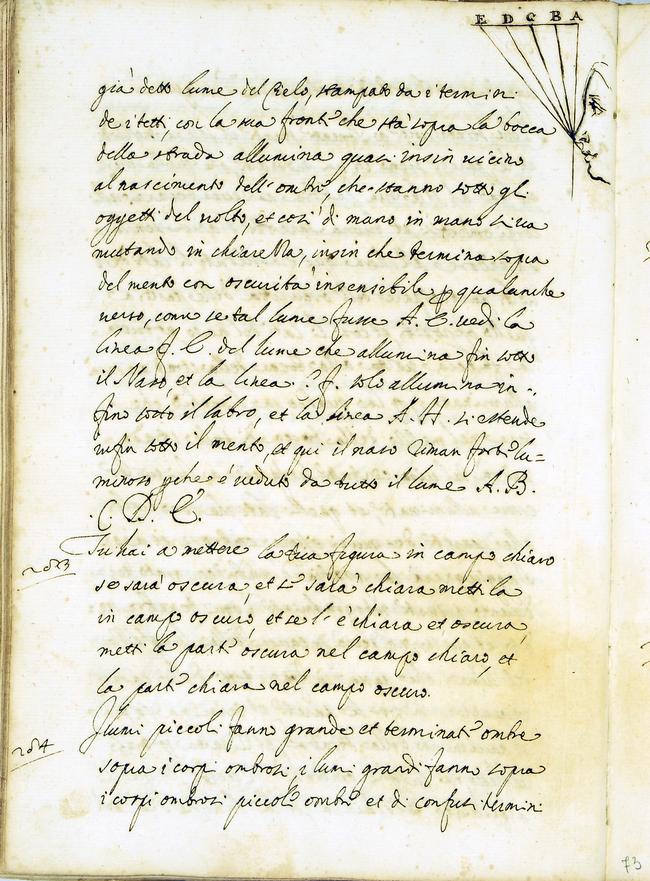 E D C B A
già detto lume del Cielo, stampato da i termini
de i tetti, con la sua front^e che sta sopra la bocca
della strada allumina quasi insin vicino
al nascimento dell'ombre, che stanno sotto gli
oggetti del volto, et così di mano in mano si va
mutando in chiarezza, insin che termina sopra
del mento con oscurità insensibile p qualunche
verso, come se tal lume fusse A. E. vedi la
linea f. E. del lume che allumina fin sotto
il Naso, et la linea f. solo allumina in-
fino sotto il labro, et la linea A. H. si estende
infin sotto il mento, et qui il naso riman fort^e lu=
minoso pche é veduto da tutto il lume A. B.
C. D. E.
203
Tu hai a mettere la tua figura in campo chiaro
se sarà oscura, et s^e sarà chiara mettila
in campo oscuro, et se l'è chiara et oscura,
metti la part^e oscura nel campo chiaro, et
la part^e chiara nel campo oscuro.
204
I lumi piccoli fanno grande et terminat^e ombre
sopra i corpi ombrosi, i lumi grandi fanno sopra
i corpi ombrosi piccole ombre et di confusi termini
73